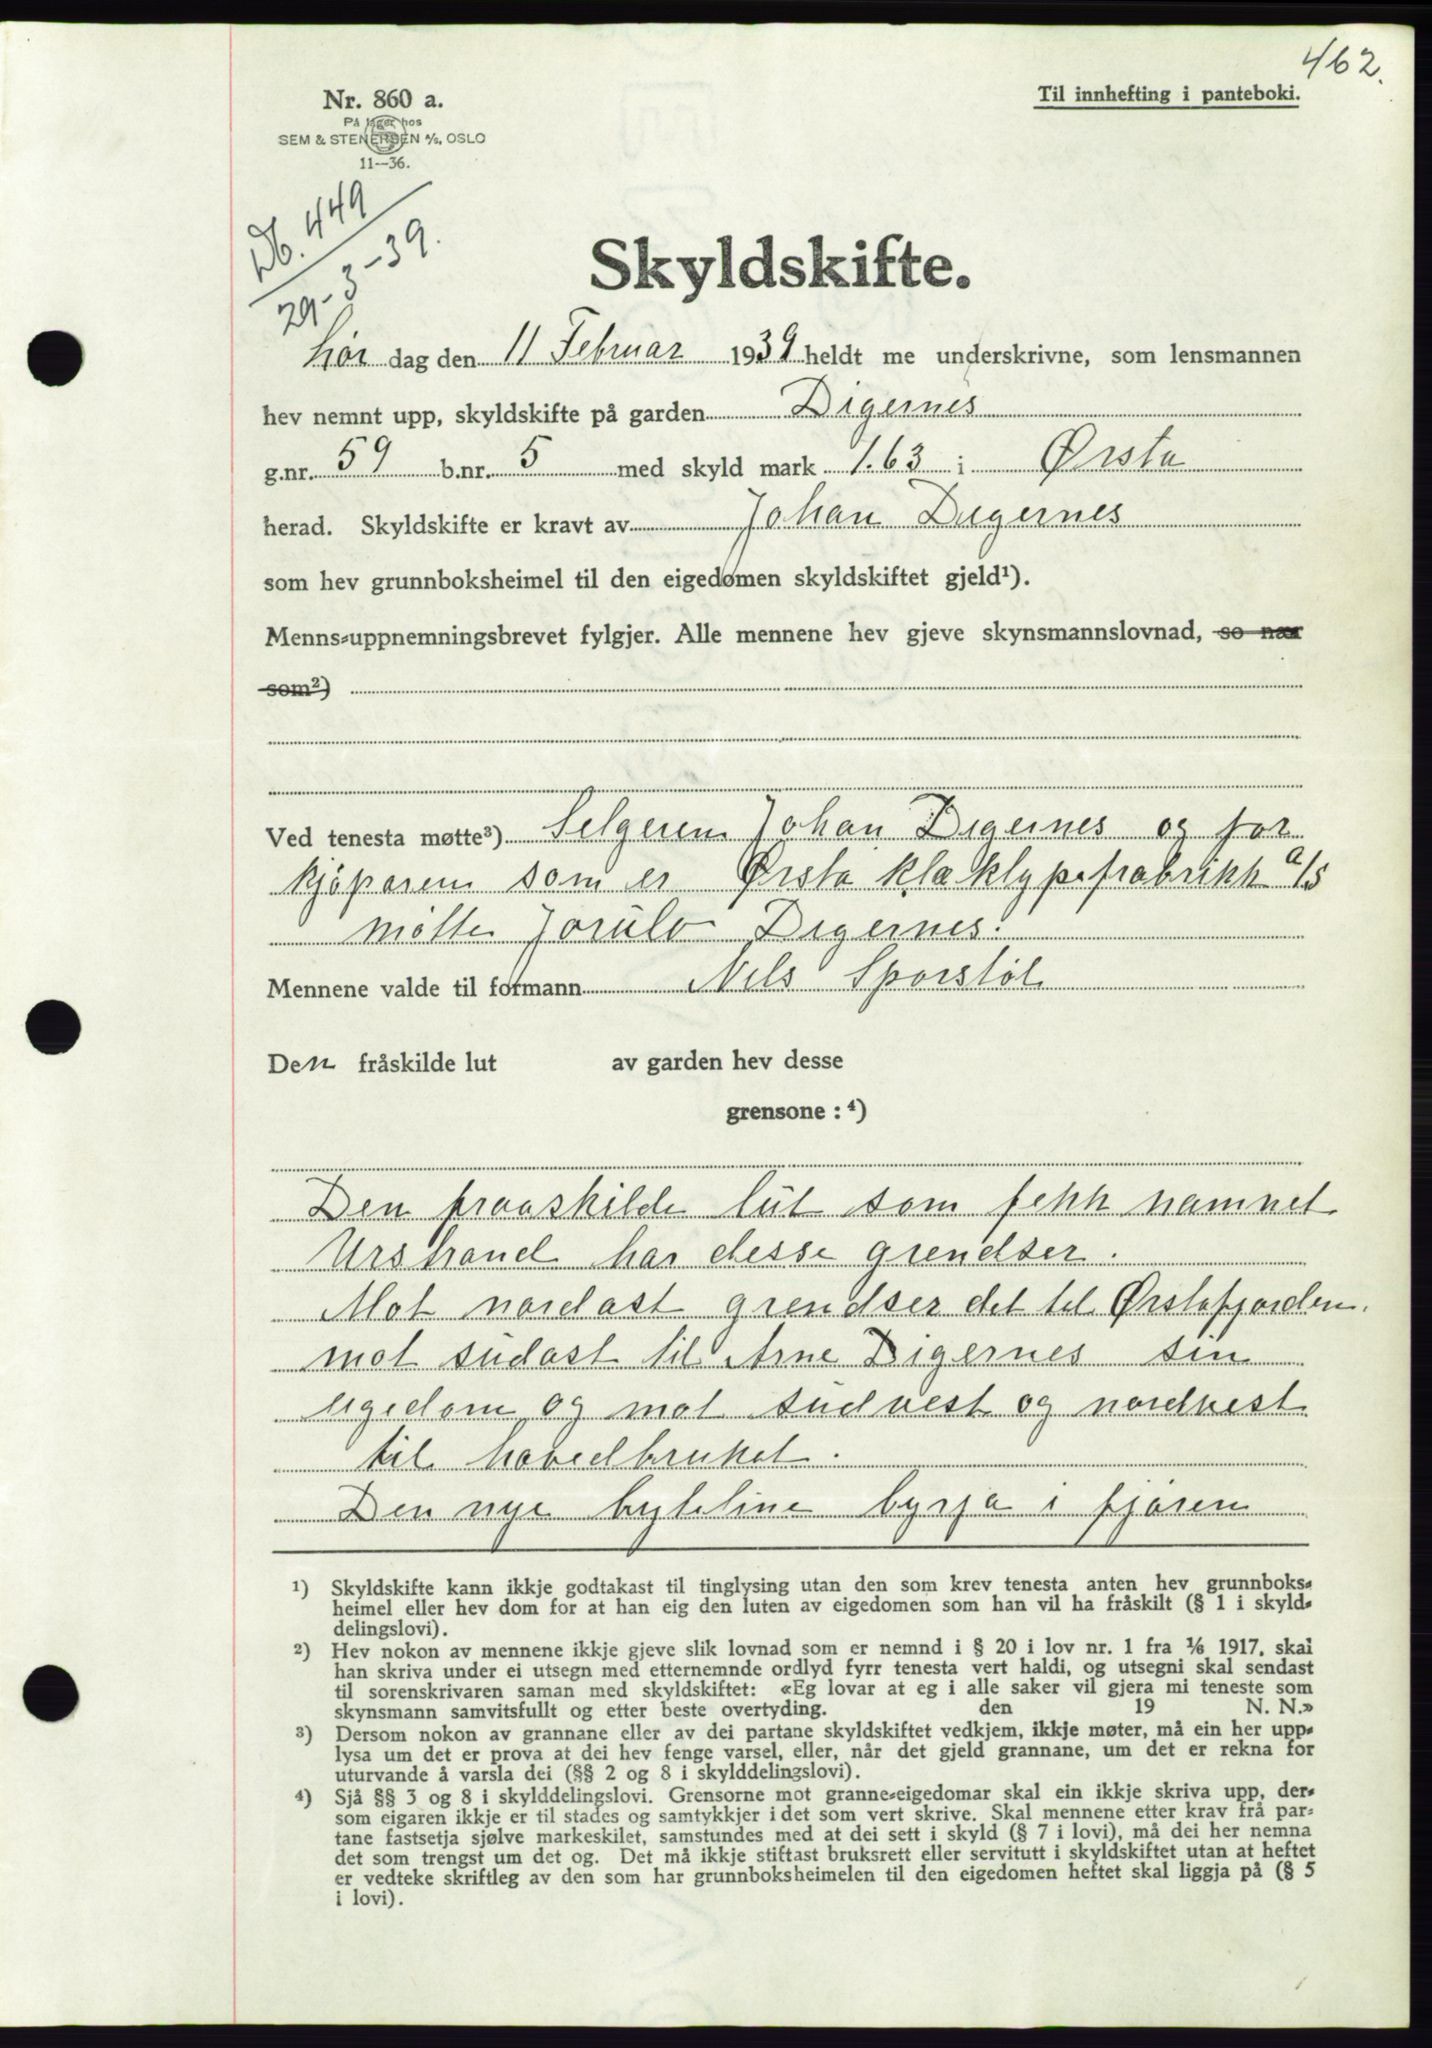 462.
Nr. 860 a.
På lager hos
SEM & STENERSEN A/S, OSLO
11--36.
Til innhefting i panteboki.
Db. 449
29-3-39.
Skyldskifte.
Lør dag den 11 Februar 1939 heldt me underskrivne, som lensmannen
hev nemnt upp, skyldskifte på garden Digernes
g.nr. 59 b.nr. 5 med skyld mark 1.63 i Ørsta
herad. Skyldskifte er kravt av Johan Digernes
som hev grunnboksheimel til den eigedomen skyldskiftet gjeld¹).
Menns-uppnemningsbrevet fylgjer. Alle mennene hev gjeve skynsmannslovnad, so nær
som²)
Ved tenesta møtte³) Selgeren Johan Digernes og for
kjøparen som er Ørsta klæklypefabrikk a/s
møtte Digernes.
Mennene valde til formann Nils Sporstøl
Den fråskilde lut av garden hev desse
grensone : ⁴)
Den fraaskilde lut som fekk namnet
Urstrand har desse grendser.
Mot nordast grendser det til Ørstafjorden.
mot sudast til Arne Digernes sin
eigedom og mot sudvest og nordvest
til hovedbruket.
Den nye byteline byrja i fjøren
¹) Skyldskifte kann ikkje godtakast til tinglysing utan den som krev tenesta anten hev grunnboks-
heimel eller hev dom for at han eig den luten av eigedomen som han vil ha fråskilt (§ 1 i skyld-
delingslovi).
²) Hev nokon av mennene ikkje gjeve slik lovnad som er nemnd i § 20 i lov nr. 1 fra 1/6 1917, skal
han skriva under ei utsegn med etternemnde ordlyd fyrr tenesta vert haldi, og utsegni skal sendast
til sorenskrivaren saman med skyldskiftet: «Eg lovar at eg i alle saker vil gjera mi teneste som
skynsmann samvitsfullt og etter beste overtyding. den 19 N. N.»
³) Dersom nokon av grannane eller av dei partane skyldskiftet vedkjem, ikkje møter, må ein her upp-
lysa um det er prova at dei hev fenge varsel, eller, når det gjeld grannane, um det er rekna for
uturvande å varsla dei (§§ 2 og 8 i skylddelingslovi).
⁴) Sjå §§ 3 og 8 i skylddelingslovi. Grensorne mot granne-eigedomar skal ein ikkje skriva upp, der-
som eigaren ikkje er til stades og samtykkjer i det som vert skrive. Skal mennene etter krav frå par-
tane fastsetja sjølve markeskilet, samstundes med at dei sett i skyld (§ 7 i lovi), må dei her nemna
det som trengst um det og. Det må ikkje stiftast bruksrett eller servitutt i skyldskiftet utan at heftet
er vedteke skriftleg av den som har grunnboksheimelen til den eigedomen heftet skal liggja på (§ 5
i lovi).